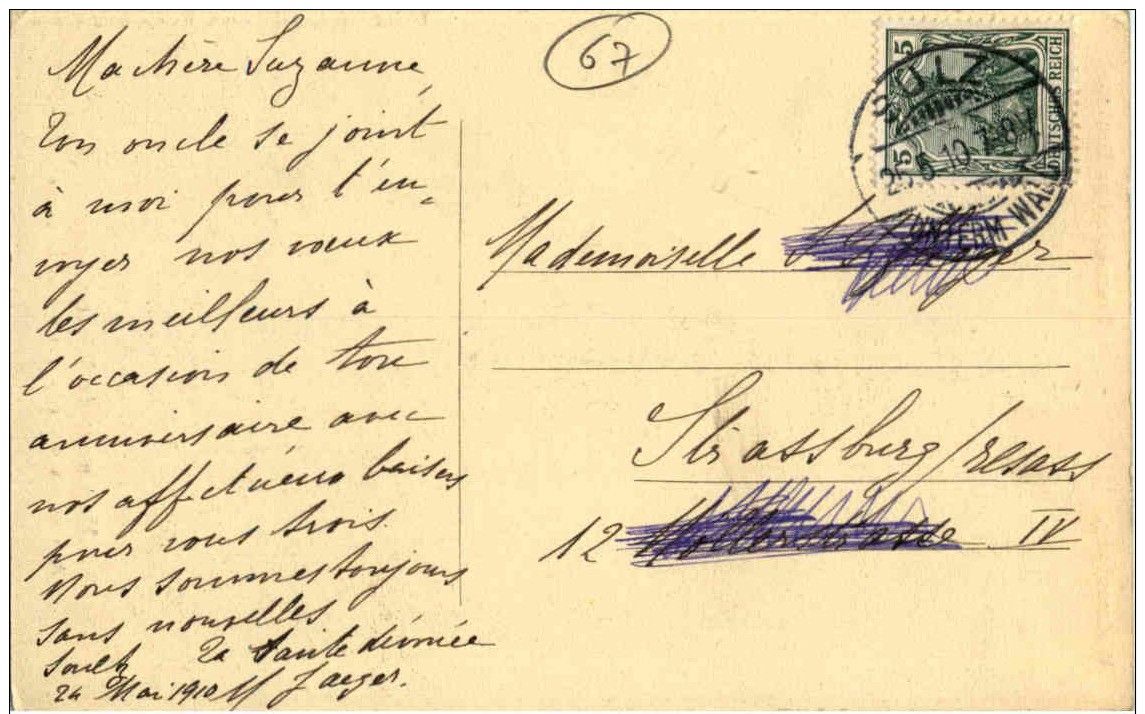 Ma chère Suzanne,
Ton oncle se joint
à moi pour t'en-
voyer nos vœux
les meilleurs à
l'occasion de ton
anniversaire avec
nos affectueux baisers
pour vous trois.
Nous sommes toujours
sans nouvelles
Ta tante dévouée
Soultz
24 Mai 1910 M Jaeger.
67
5 5
DEUTSCHES REICH
SULZ
25 5 10
UNTERM WALD
Mademoiselle
Strassburg/
12 IV